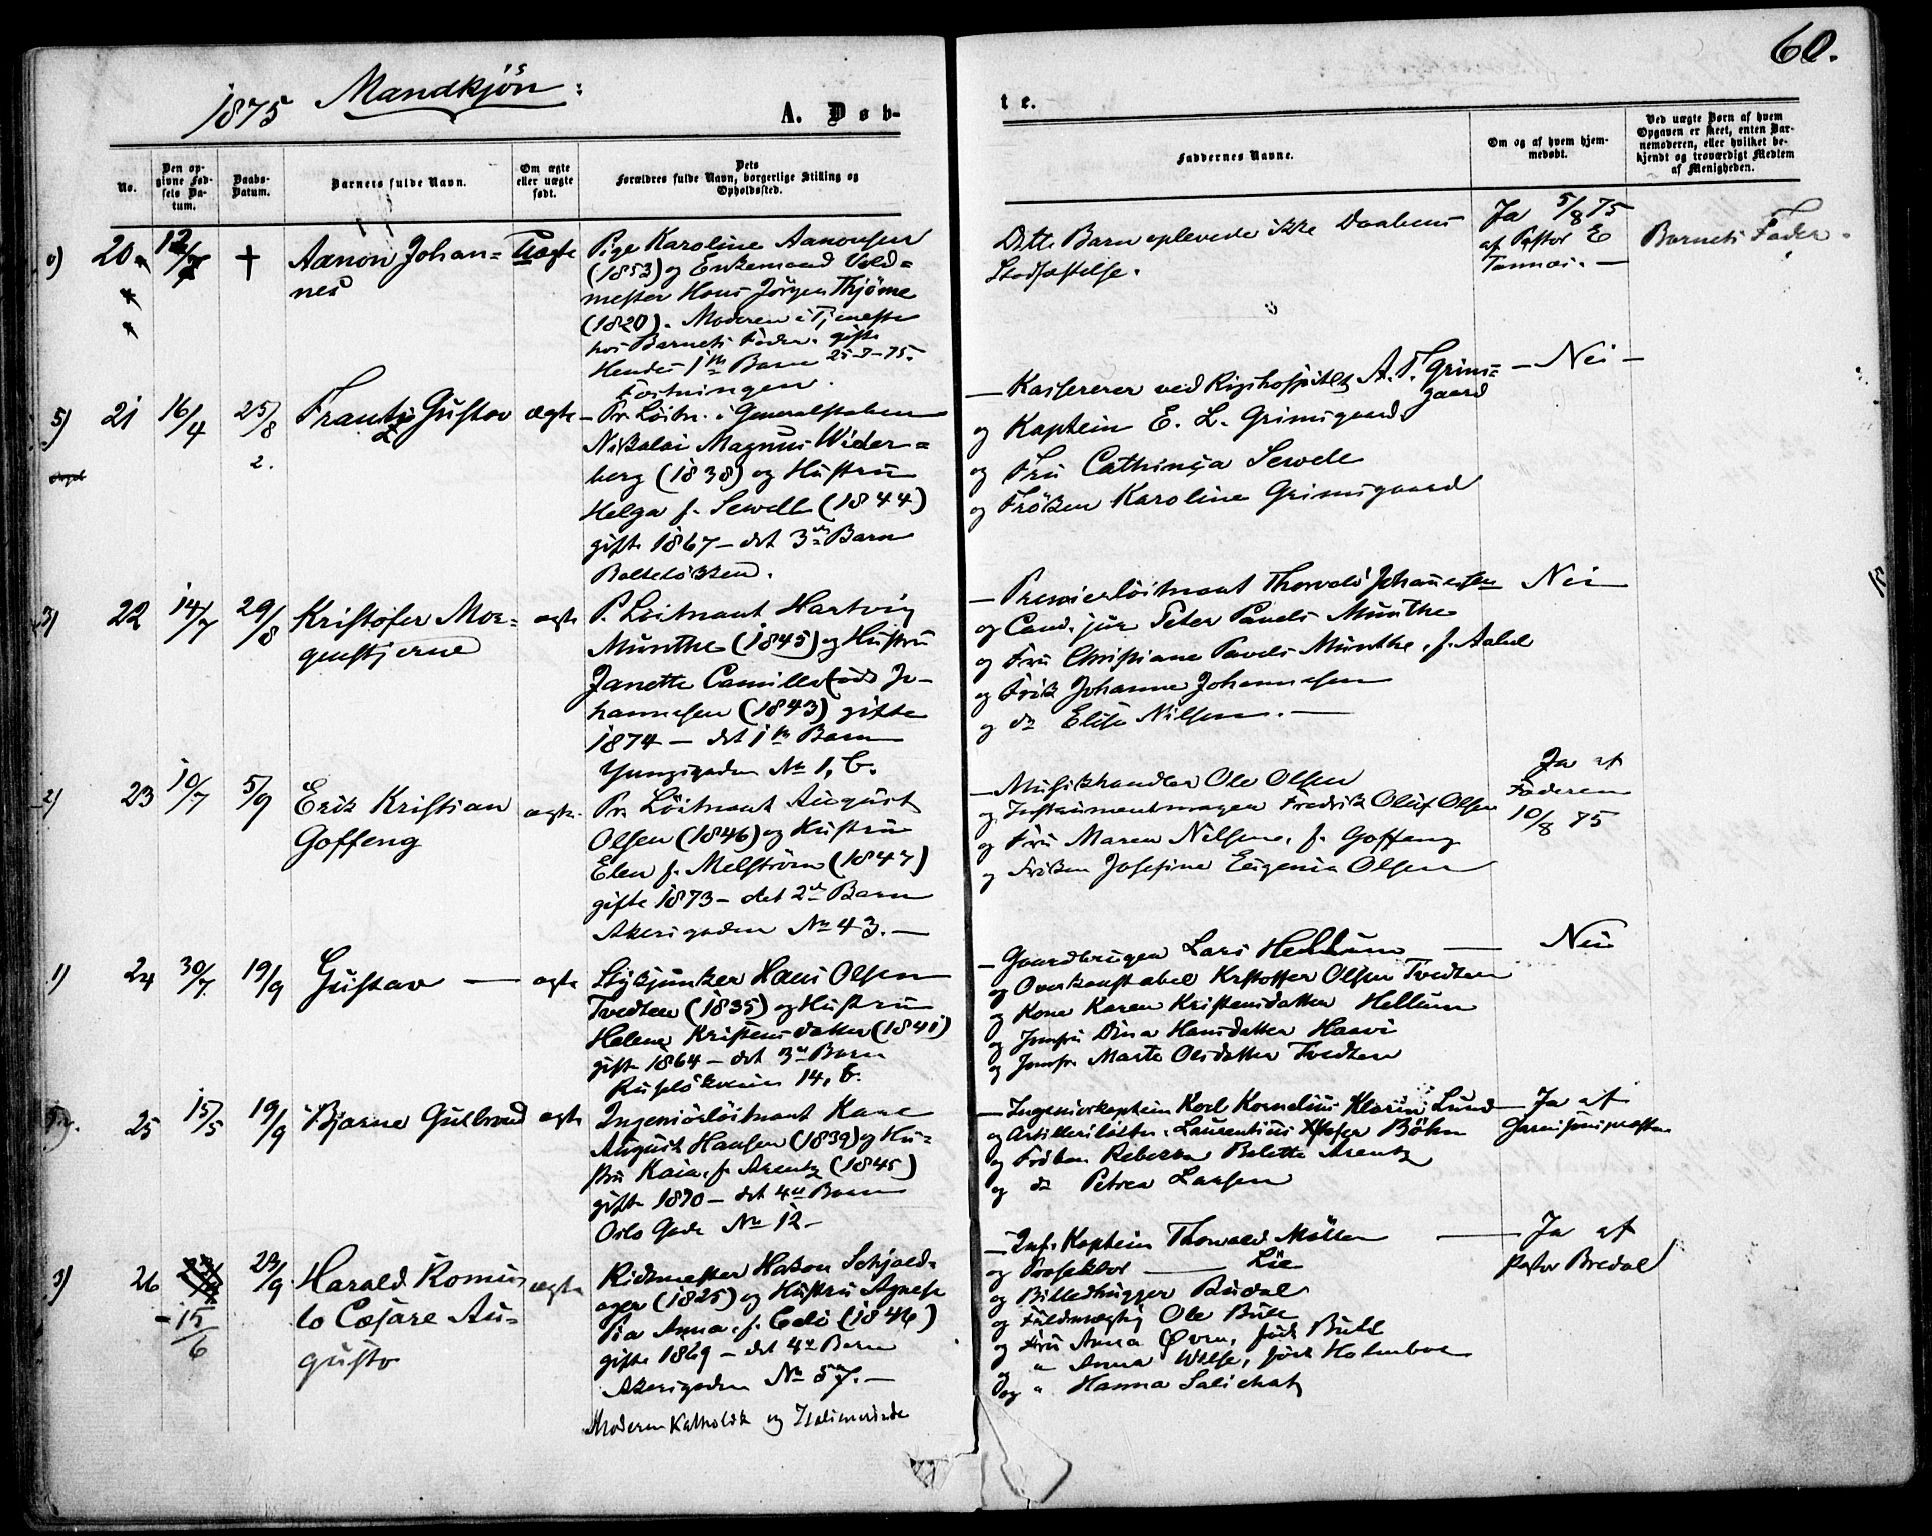 60.
1875 Mandkjön:
A. Døb-
te.
No.
Den op-
givne Fød-
sels Da-
tum.
Daabs-
Datum.
Barnets fulde Navn.
Om ægte
eller uægte
født.
Dets
Forældres fulde Navn, borgerlige Stilling og
Opholdssted.
Faddernes Navne.
Om og af hvem hjem-
medøbt.
Ved uægte Børn af hvem
Opgaven er skeet, enten Bar-
nemoderen, eller hvilket be-
kjendt og troværdigt Medlem
af Menigheden.
0) 20 12/7 † Aanon Johan=
nes
Uægte
Pige Karoline Aanonsen
(1853) og Enkemand Vold=
mester Hans Jörgen Thjöme
(1820). Moderen i Tjeneste
hos Barnets Fader. gift
Hendes 1ste Barn 25-7-75.
Fæstningen.
Dette Barn oplevede ikke Daabens
Stadfæstelse.
Ja 5/8 75
af Pastor E
Barnets Fader.
5) 21 16/4 25/8
2.
Frantz Gustav ægte
Pr. Löitn. i Generalstaben
Nikolai Magnus Wider=
berg (1838) og Hustru
Helga f. Sewell (1844)
gifte 1867 – det 3die Barn
Bolteløkken.
— Kasserer ved Rigshospitalet A. T. Grims=
gaard
og Kaptein E. L. Grimsgaard
og Fru Cathinca Sewell
og Fröken Karoline Grimsgaard
— Nei —
3) 22 14/7 29/8 Kristofer Mor=
genstjerne
ægte
P. Löitnant Hartvig
Munthe (1845) og Hustru
Janette Camilla föd Jo-
hannesen (1843) gifte
1874 — det 1ste Barn
Yungsgaden No 1, b.
— Premierlöitnant Thorvald Johannesen
og Cand. jur Peter Pavels Munthe
og Fru Christiane Pavels Munthe, f. Aabel
og Frök Johanne Johannesen
og do Elise Nilsen. —
Nei
2) 23 10/7 5/9 Erik Kristian
Goffeng
ægte.
Pr. Löitnant August
Olsen (1846) og Hustru
Elen f. Melström (1847)
gifte 1873 – det 2det Barn
Akersgaden No 43. —
— Musikhandler Ole Olsen
og Instrumentmager Fredrik Oluf Olsen
og Fru Maren Nilsene, f. Goffeng
og Fröken Josefine Eugenia Olsen
Ja af
Faderen
10/8 75
1) 24 30/7 19/9 Gustav — ægte
Stykjunker Hans Olsen
Tvedten (1835) og Hustru
Helene Kristensdatter (1841)
gift 1864 – det 3die Barn
Ruselökveien 14, b.
— Gaardbruger Lars Hellum
og Overkonstabel Kristoffer Olsen Tvedten
og Kone Karen Kristensdatter Hellum
og Jomfru Dina Hansdatter Haavi
og Jomfr. Marte Olsdatter Tvedten
— Nei
25 15/5 19/9 Bjarne Gulbrand ægte
Ingeniörlöitnant Karl
August Hansen (1839) og Hu=
stru Kaia, f. Arentz (1845)
gifte 1870 – det 4de Barn
Oslo Gade No 12 –
— Ingeniörkaptein Karl Kornelius Lund
og Artillerilöitn. Laurentius Böhn
og Fröken Rebekka Bolette Arentz
og do Petrea Larsen
— Ja af
Garnisonspresten
3) 26 15/6 23/9 Harald Romu=
lo Cæsare Au=
gusto
ægte
Ridtmester Hakon Schjeld-
ager (1825) og Hustru Agnese
Pia Anna, f. Celi (1846)
gifte 1869 – det 4de Barn
Akersgaden No 57. —
Moderen Katholik og Italienerinde
— Inf. Kaptein Thorvald Möller
og Prosektor — Lie
og Billedhugger Budal
og Fuldmægtig Ole Bull
og Fru Anna Öven, född Bull
og " Anna Wilse, född Holmboe
og " Hanna Salicath
— Ja af
Pastor Bredal